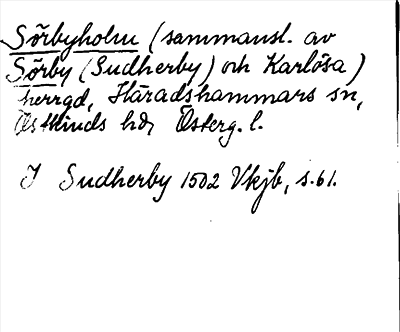 Sörbyholm (sammansl. av
Sörby (Sudherby) och Karlösa)
herrgd, Häradshammars sn,
Östkinds hd, Österg. l.
I Sudherby 1502 Vkjb, s. 61.